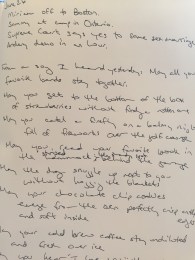 June 26
Minivan off to Boston
Sunny at camp in Ontario.
Supreme Court says yes to same sex marriage
Ardary drama in an hour.
From a song I heard yesterday: May all your
favorite bands stay together.
May you get to the bottom of the box
of strawberries without finding rotten one
May you catch a firefly on a balmy night
full of fireworks over the golf course
May you read your favorite book in
the hammock behind the garage
May the dog snuggle up next to you
without hogging the blankets
May your chocolate chip cookies
emerge from the oven perfectly crisp on the edges
and soft inside
May your cold brew coffee stay undiluted
and fresh over ice
you hear "I love you"